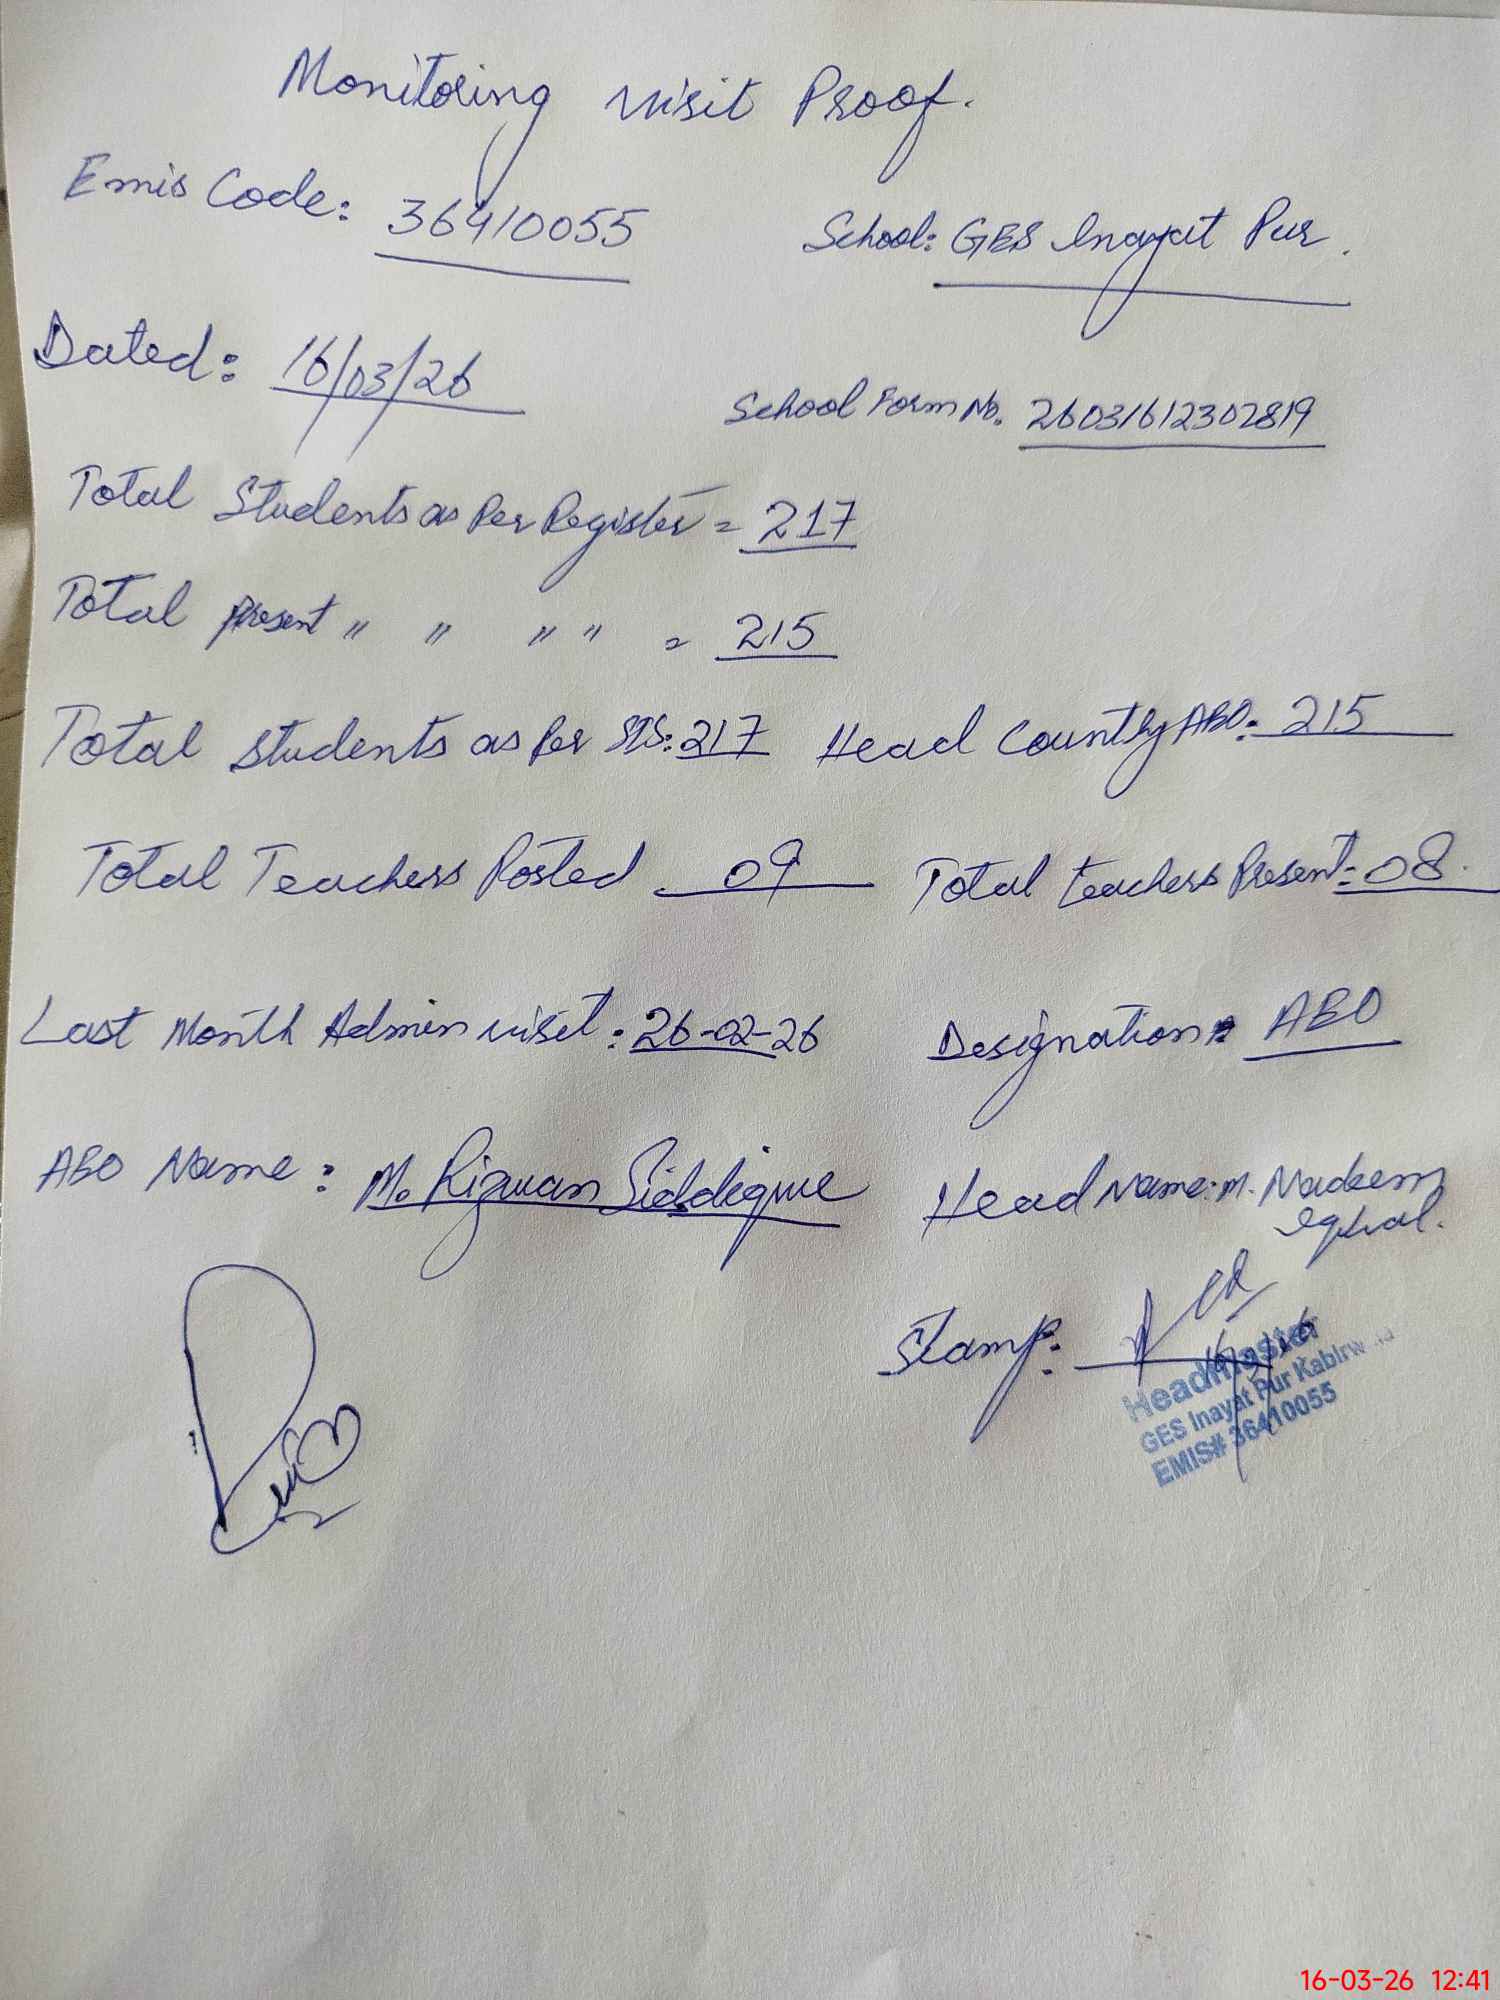 Monitoring visit Proof.
Emis Code: 36410055
School: GES Inayat Pur.
Dated: 16/03/26
School Form No. 26031612302819
Total Students as Per Register = 217
Total present " " " " = 215
Total students as per SIS: 217 Head Count by ABO: 215
Total Teachers Posted 09 Total teachers Present: 08.
Last Month Admin visit: 26-02-26 Designation: ABO
ABO Name: M. Rizwan Siddeique Head Name: M. Nadeem
Iqbal.
Stamp:
Headmaster
GES Inayat Pur
EMIS# 36410055
16-03-26 12:41